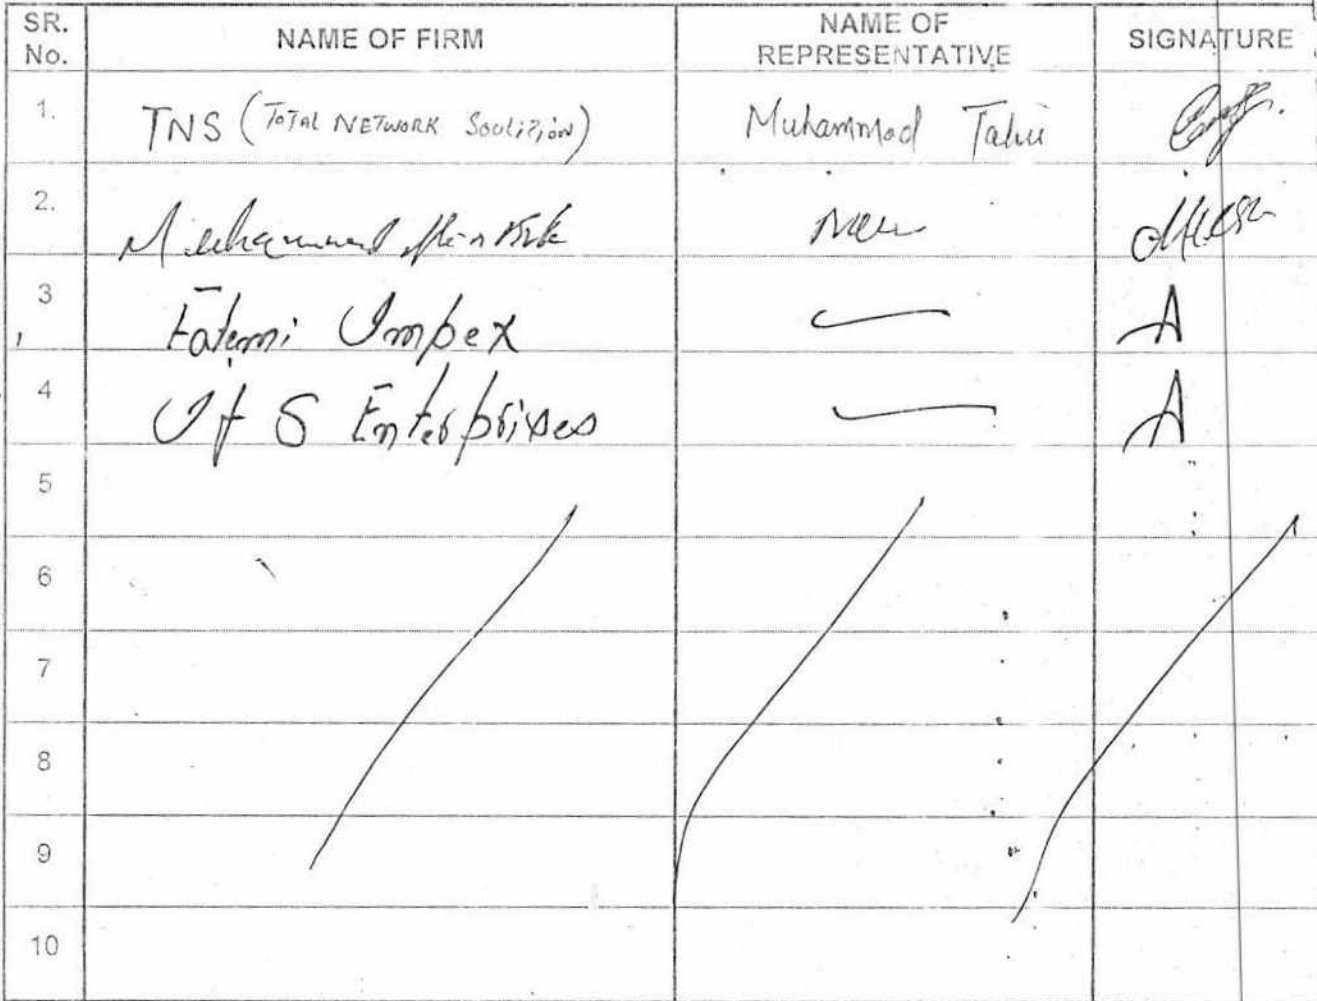 SR. No. NAME OF FIRM NAME OF REPRESENTATIVE SIGNATURE
1. TNS (TOTAL NETWORK Soulition) Muhammad Tahir
2. Muhammad
3 Fatemi Impex
4 Enterprises
5
6
7
8
9
10